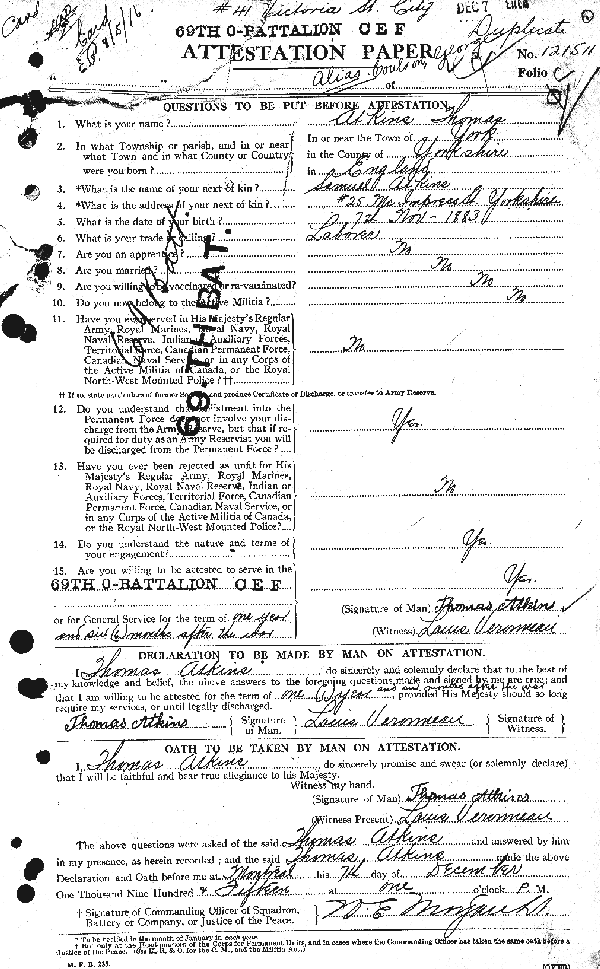 Card
Card
E.P. 8/5/16
# 41 Victoria St. City DEC 7
Duplicate
69TH O-BATTALION C E F
ATTESTATION PAPER No. 121511
Alias Coulson, George Folio
of
QUESTIONS TO BE PUT BEFORE ATTESTATION.
1. What is your name? Atkins Thomas
2. In what Township or parish, and in or near In or near the Town of York
what Town and in what County or Country in the County of Yorkshire
were you born? in England
3. *What is the name of your next of kin? Samuel Atkins
4. *What is the address of your next of kin? #25 Yorkshire
5. What is the date of your birth? 7th Nov - 1883
6. What is your trade or calling? Laborer
7. Are you an apprentice? No
8. Are you married? No
9. Are you willing to be vaccinated or re-vaccinated? No
10. Do you now belong to the Active Militia? No
11. Have you ever served in His Majesty's Regular
Army, Royal Marines, Royal Navy, Royal
Naval Reserve, Indian or Auxiliary Forces,
Territorial Force, Canadian Permanent Force,
Canadian Naval Service, or in any Corps of
the Active Militia of Canada, or the Royal
North-West Mounted Police? †† No
69.TH BAT.
†† If so, state particulars of former Service, and produce Certificate of Discharge, or transfer to Army Reserve.
12. Do you understand that enlistment into the
Permanent Force does not involve your dis-
charge from the Army Reserve, but that if re-
quired for duty as an Army Reservist you will
be discharged from the Permanent Force? Yes.
13. Have you ever been rejected as unfit for His
Majesty's Regular Army, Royal Marines,
Royal Navy, Royal Naval Reserve, Indian or
Auxiliary Forces, Territorial Force, Canadian
Permanent Force, Canadian Naval Service, or
in any Corps of the Active Militia of Canada,
or the Royal North-West Mounted Police? No
14. Do you understand the nature and terms of
your engagement? Yes
15. Are you willing to be attested to serve in the
69TH O-BATTALION C E F Yes.
or for General Service for the term of one year (Signature of Man) Thomas Atkins
and six (6) months after the war (Witness) Louis Veronneau
DECLARATION TO BE MADE BY MAN ON ATTESTATION.
I, Thomas Atkins do sincerely and solemnly declare that to the best of
my knowledge and belief, the above answers to the foregoing questions made and signed by me are true; and
that I am willing to be attested for the term of one (1) year and six months after the war provided His Majesty should so long
require my services, or until legally discharged.
Thomas Atkins } Signature of Man. { Louis Veronneau } Signature of Witness.
OATH TO BE TAKEN BY MAN ON ATTESTATION.
I, Thomas Atkins do sincerely promise and swear (or solemnly declare)
that I will be faithful and bear true allegiance to his Majesty.
Witness my hand.
(Signature of Man) Thomas Atkins
(Witness Present) Louis Veronneau
The above questions were asked of the said Thomas Atkins and answered by him
in my presence, as herein recorded; and the said Thomas Atkins made the above
Declaration and Oath before me at Montreal this 7th day of December
One Thousand Nine Hundred & Fifteen at one o'clock P. M.
† Signature of Commanding Officer of Squadron,
Battery or Company, or Justice of the Peace.
* To be recited in the month of January in each year.
M. F. B. 235.